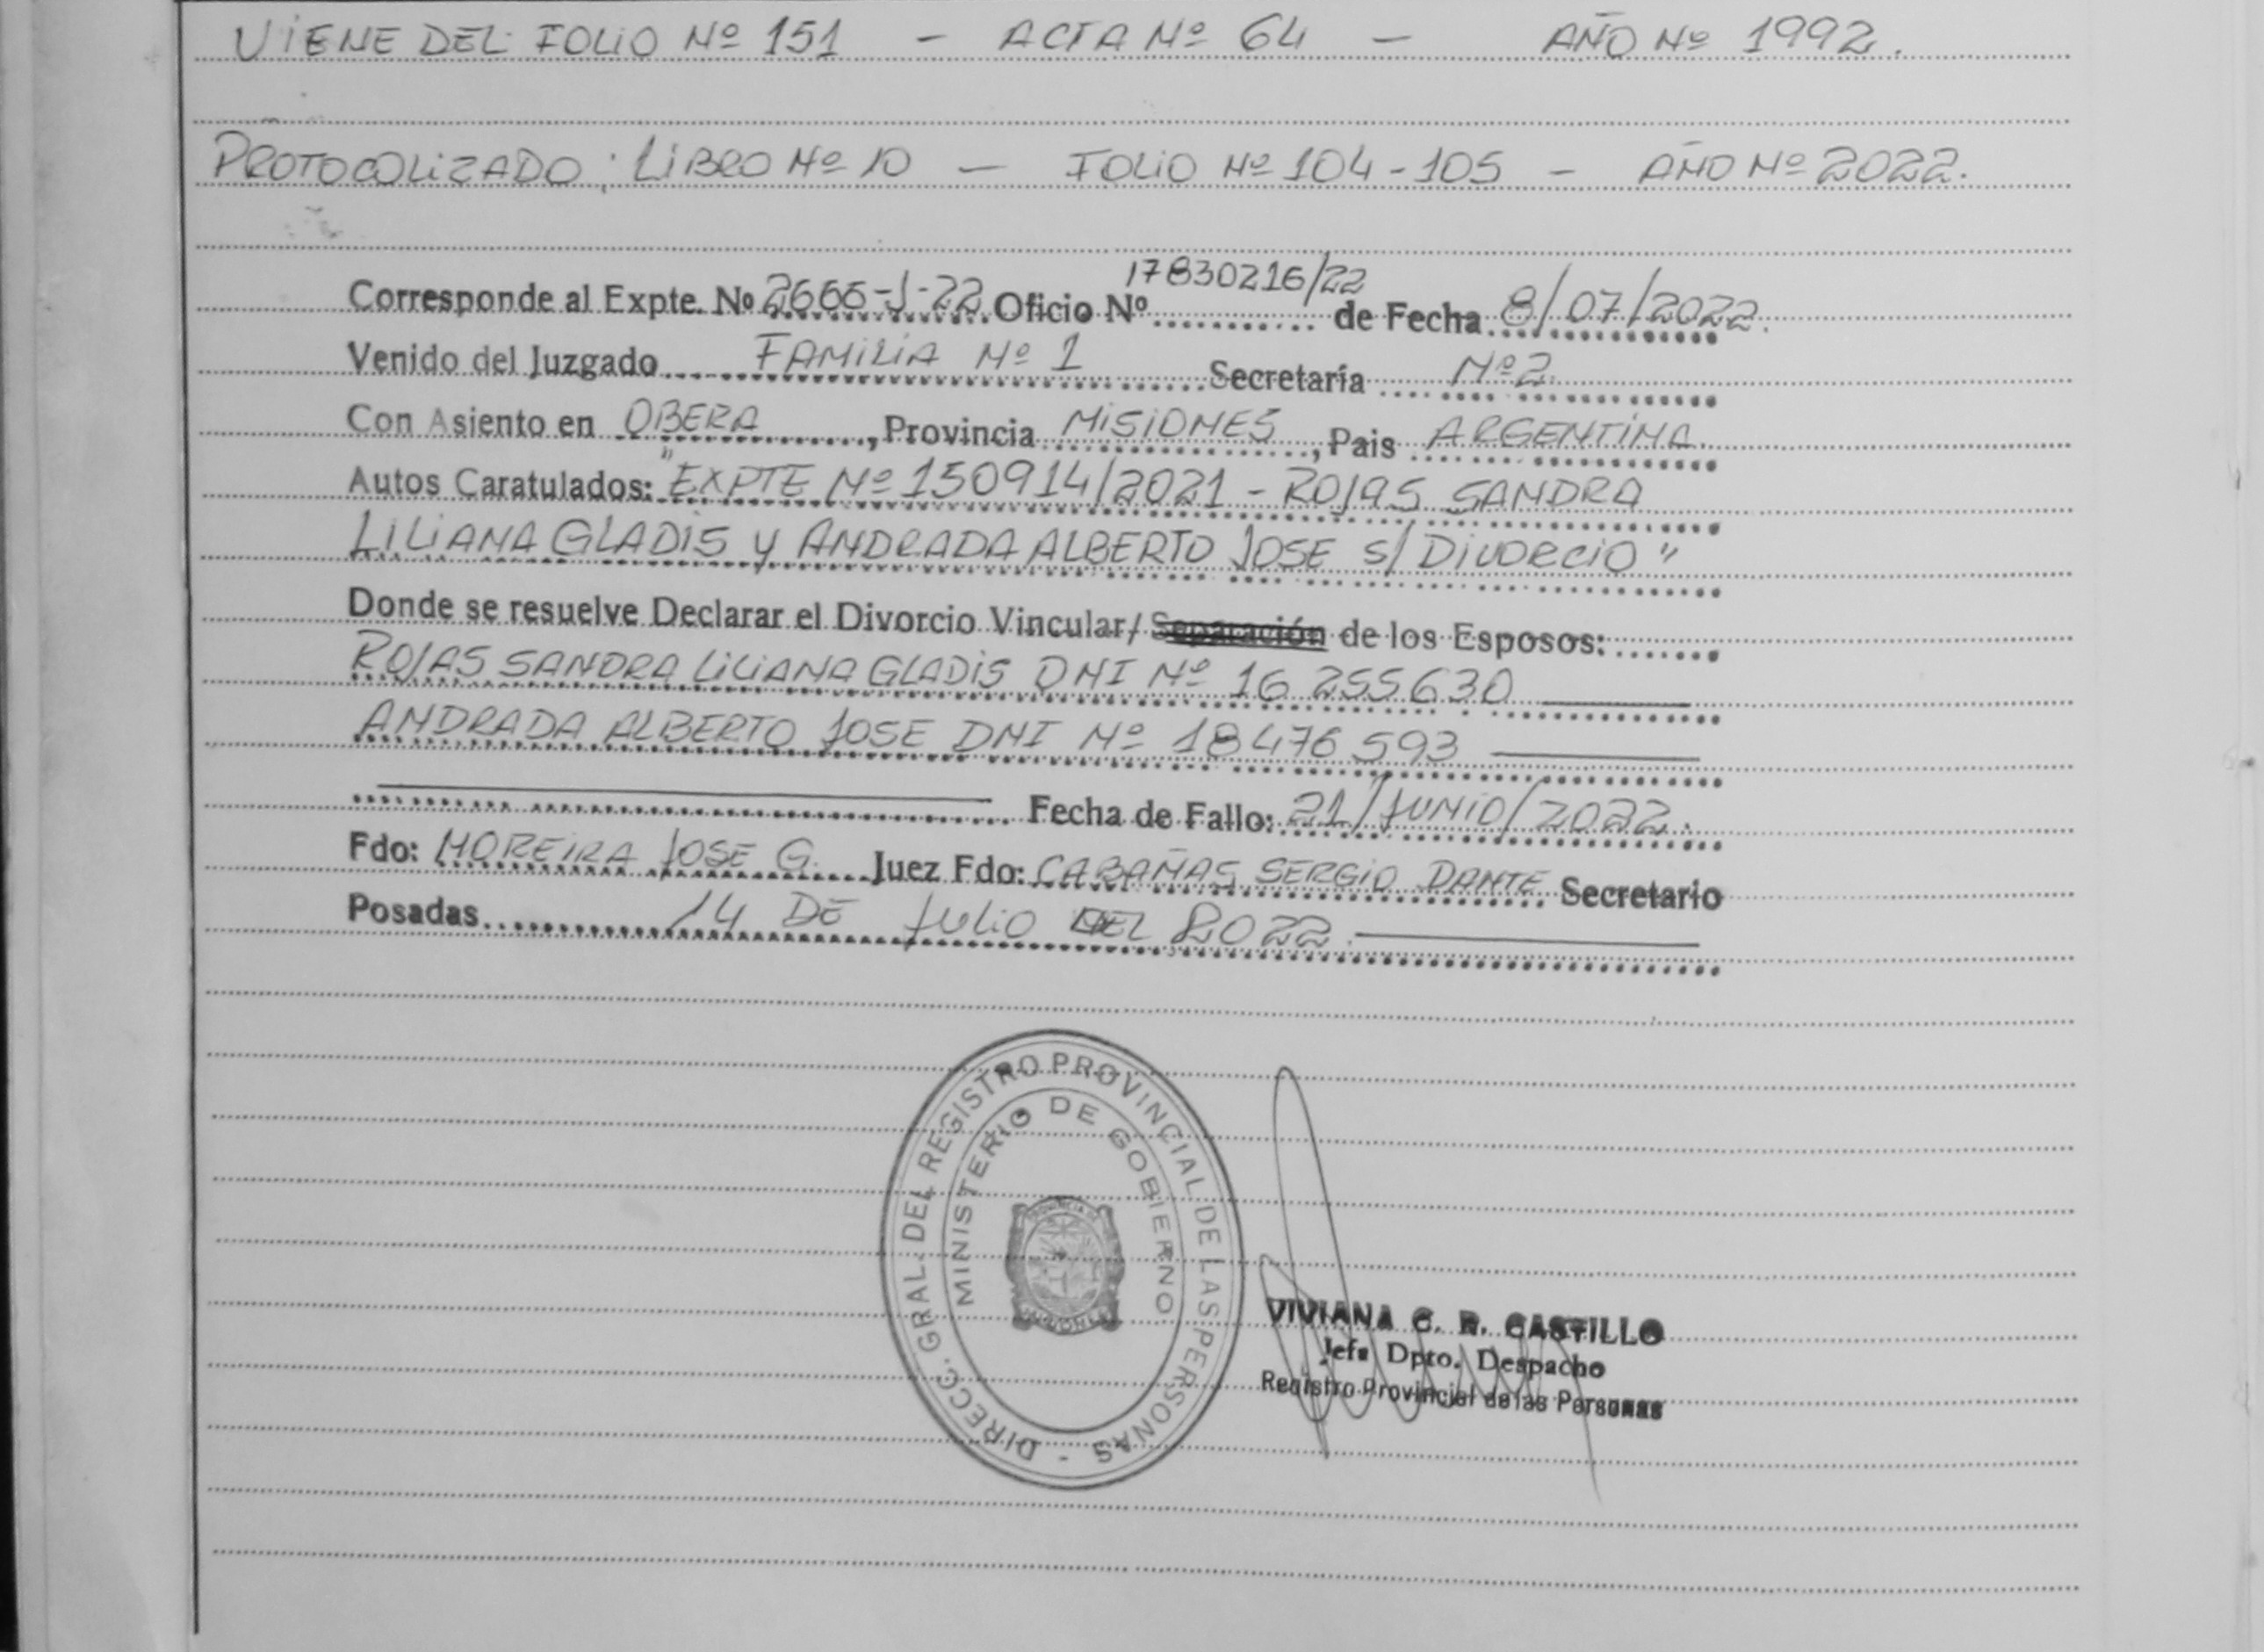 VIENE DEL FOLIO Nº 151 - ACTA Nº 64 - AÑO Nº 1992.
PROTOCOLIZADO: LIBRO Nº 10 - FOLIO Nº 104-105 - AÑO Nº 2022.
Corresponde al Expte. Nº 2666-J-22 Oficio Nº 17830216/22 de Fecha 8/07/2022.
Venido del Juzgado FAMILIA Nº 1 Secretaría Nº 2.
Con Asiento en OBERA, Provincia MISIONES, Pais ARGENTINA.
Autos Caratulados: "EXPTE Nº 150914/2021 - ROJAS SANDRA
LILIANA GLADIS y ANDRADA ALBERTO JOSE S/ DIVORCIO"
Donde se resuelve Declarar el Divorcio Vincular/ Separación de los Esposos:
ROJAS SANDRA LILIANA GLADIS DNI Nº 16 255 630
ANDRADA ALBERTO JOSE DNI Nº 18 476 593
Fecha de Fallo: 21/JUNIO/2022.
Fdo: MOREIRA JOSE G. Juez Fdo: CABAÑAS SERGIO DANTE Secretario
Posadas 14 DE JULIO DEL 2022.
DIRECC. GRAL. DEL REGISTRO PROVINCIAL DE LAS PERSONAS -
MINISTERIO DE GOBIERNO
VIVIANA C. R. CASTILLO
Jefa Dpto. Despacho
Registro Provincial de las Personas